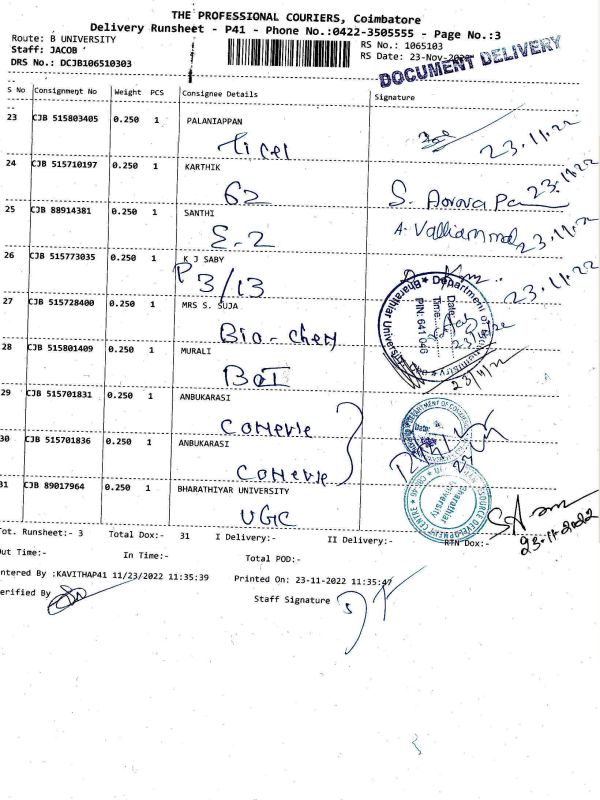 THE PROFESSIONAL COURIERS, Coimbatore
Delivery Runsheet - P41 - Phone No.:0422-3505555 - Page No.:3
Route: B UNIVERSITY
RS No.: 1065103
Staff: JACOB
RS Date: 23-Nov-2022
DRS No.: DCJB106510303
DOCUMENT DELIVERY
S No Consignment No Weight PCS Consignee Details Signature
23 CJB 515803405 0.250 1 PALANIAPPAN
23.11.22
24 CJB 515710197 0.250 1 KARTHIK
62
23.11.22
25 CJB 88914381 0.250 1 SANTHI
A. Valliammal 23.11.22
26 CJB 515773035 0.250 1 K J SABY
P 3/13
23.11.22
27 CJB 515728400 0.250 1 MRS S. SUJA
Bio-chem
PIN: 641 046
28 CJB 515801409 0.250 1 MURALI
23/11/22
29 CJB 515701831 0.250 1 ANBUKARASI
30 CJB 515701836 0.250 1 ANBUKARASI
31 CJB 89017964 0.250 1 BHARATHIYAR UNIVERSITY
UGC
23-11-2022
Tot. Runsheet:- 3 Total Dox:- 31 I Delivery:- II Delivery:- RTN Dox:-
Out Time:- In Time:- Total POD:-
Entered By :KAVITHAP41 11/23/2022 11:35:39 Printed On: 23-11-2022 11:35:47
Verified By
Staff Signature